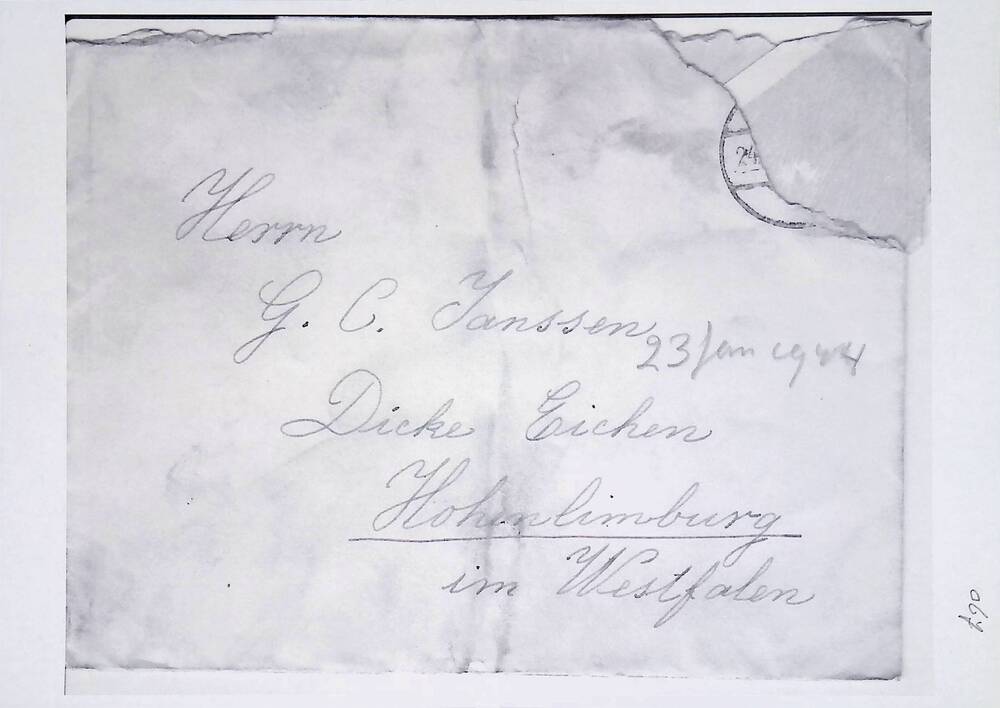 24
Herrn
G. C. Janssen
23 Jan 1944
Dicke Eichen
Hohenlimburg
im Westfalen
067